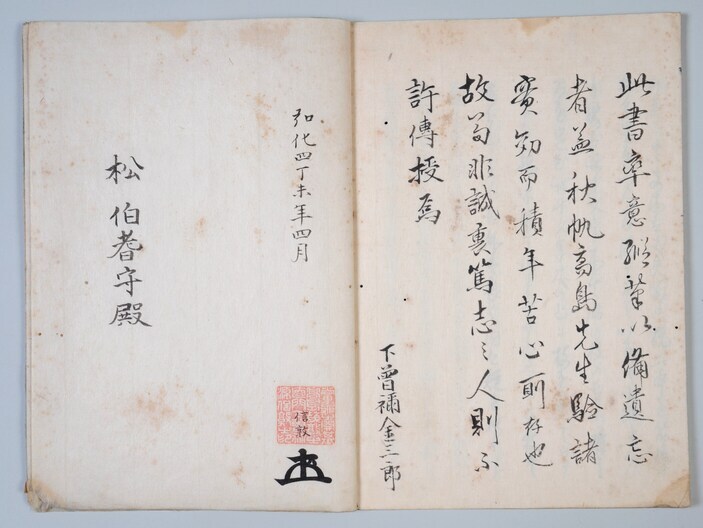 此書率意縱筆以備遺忘
者並秋帆高島先生驗諸
實効而積年苦心則存也
故苟非誠裏篤志之人則不
許傳授焉
下曾禰金三郎
弘化四丁未年四月
信敦
松伯耆守殿